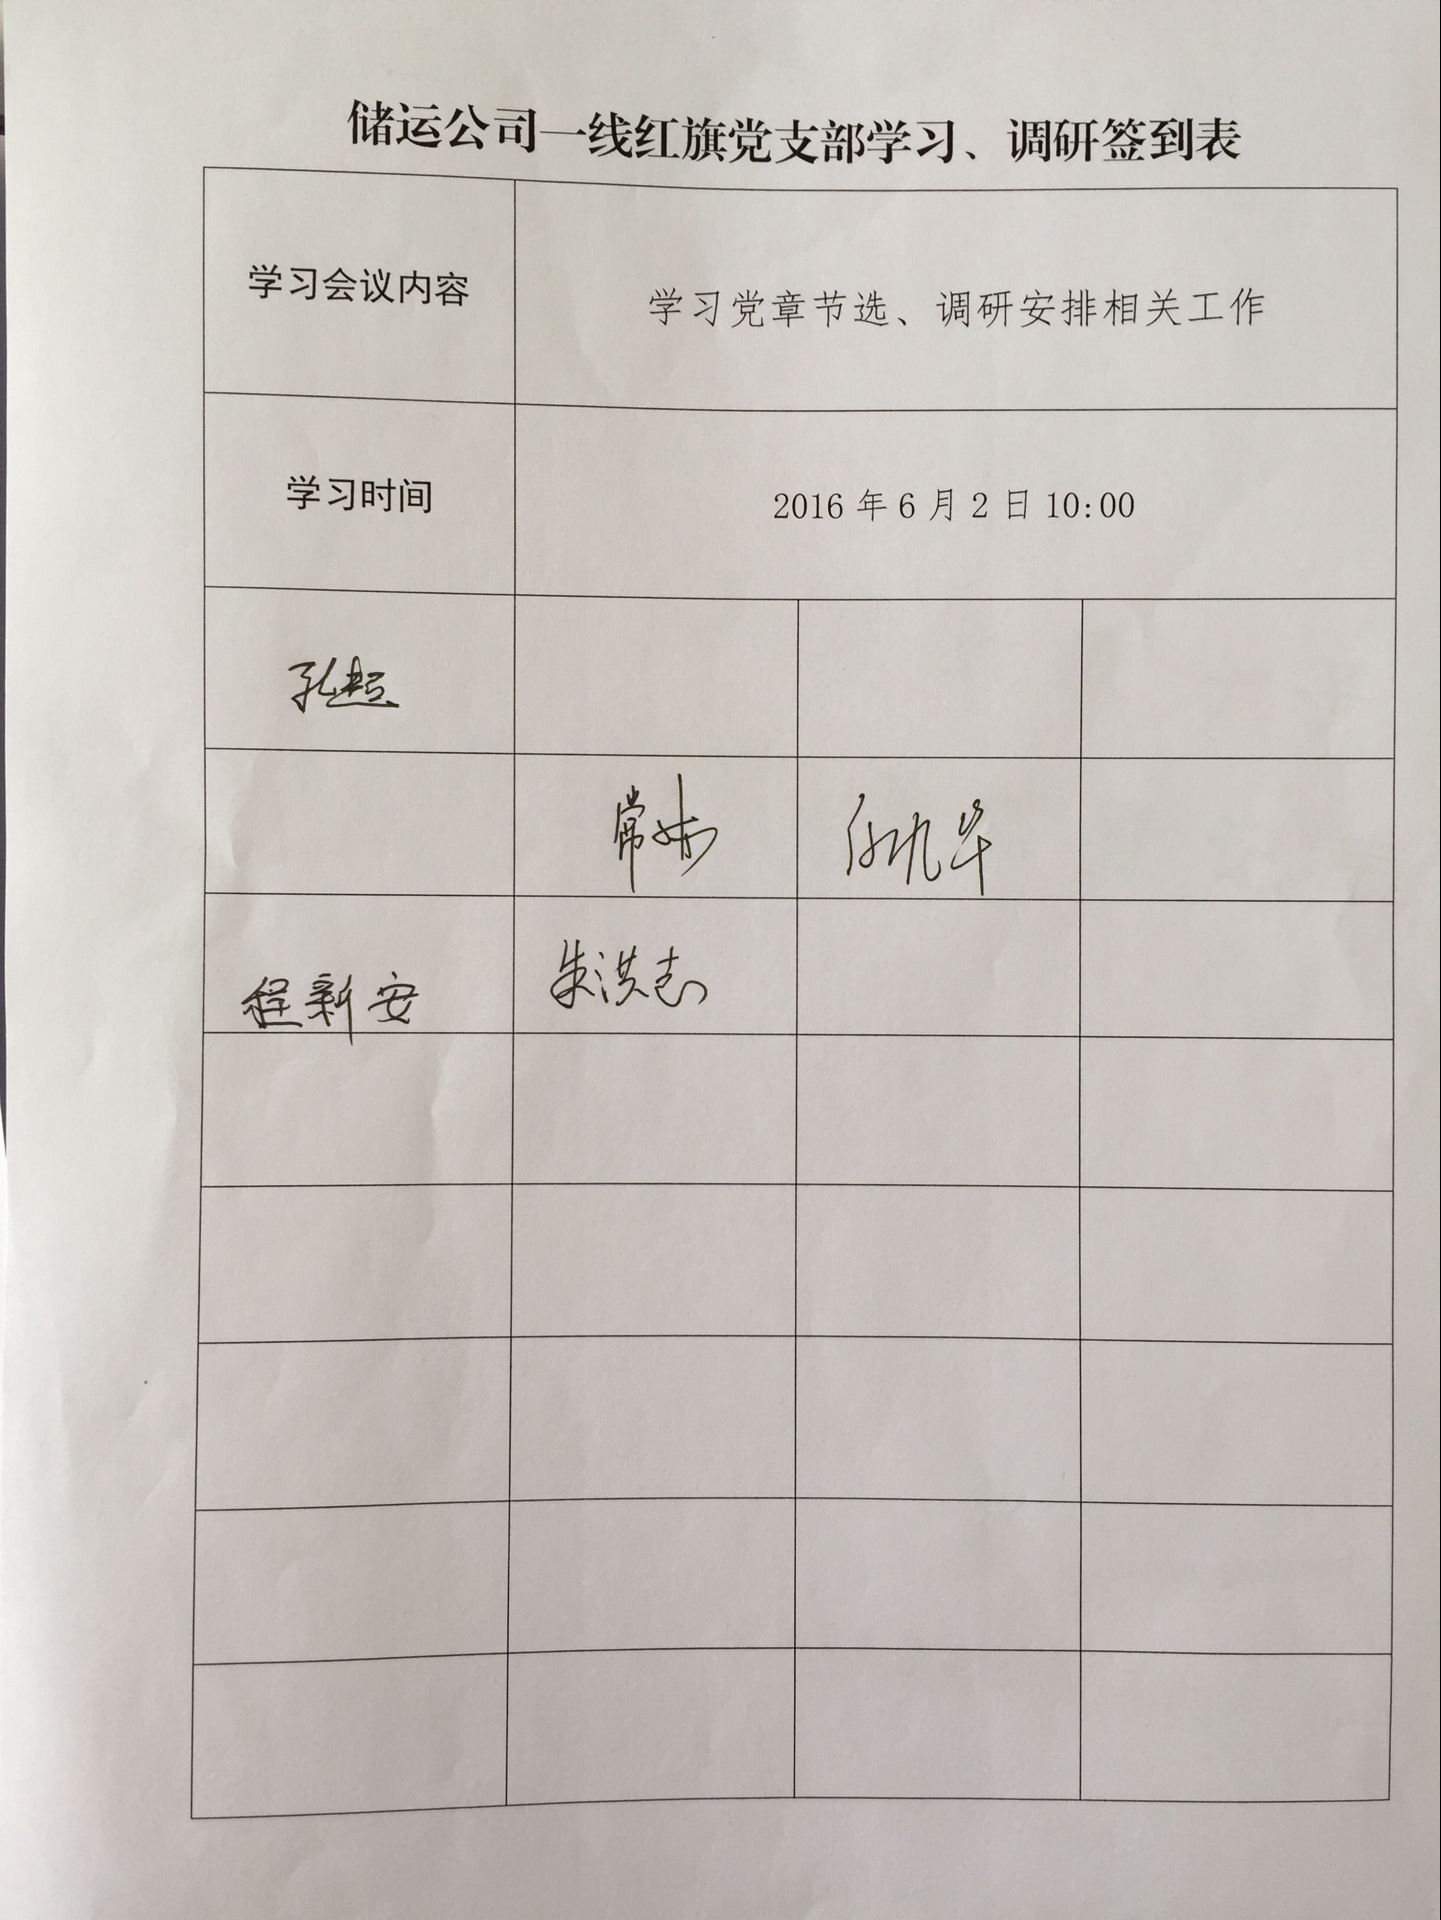 储运公司一线红旗党支部学习、调研签到表
学习会议内容
学习党章节选、调研安排相关工作
学习时间
2016 年 6 月 2 日 10:00
孔超
常
九华
程新安
朱洪志